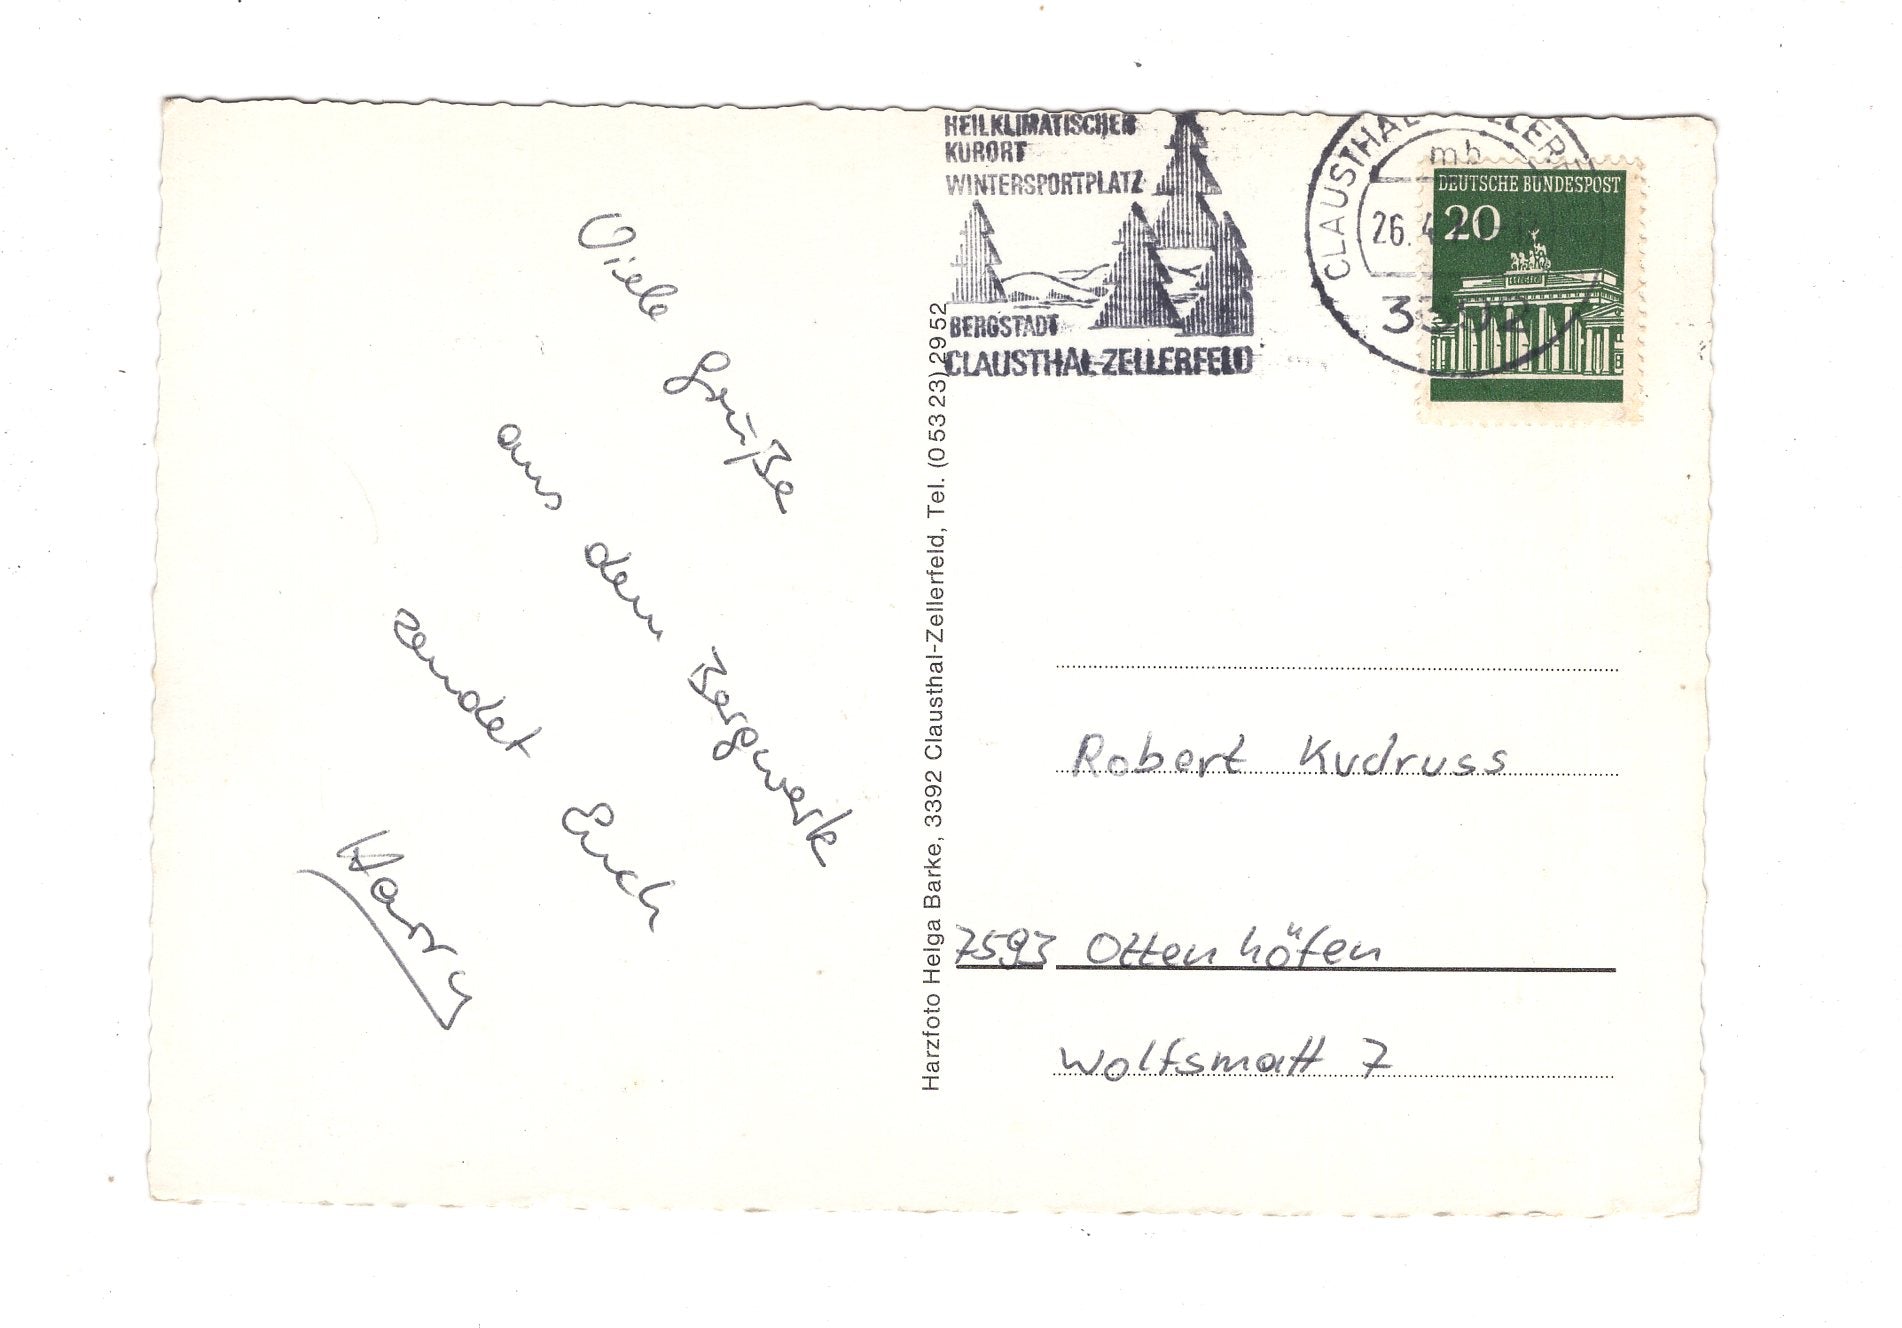 Viele Grüße
aus dem Bergwerk
sendet Euch
Harry
Harzfoto Helga Barke, 3392 Clausthal-Zellerfeld, Tel. (0 53 23) 29 52
HEILKLIMATISCHER
KURORT
WINTERSPORTPLATZ
BERGSTADT
CLAUSTHAL-ZELLERFELD
CLAUSTHAL-ZELLERFELD
mb
26.4
3392
DEUTSCHE BUNDESPOST
20
Robert Kudruss
7593 Ottenhöfen
Wolfsmatt 7